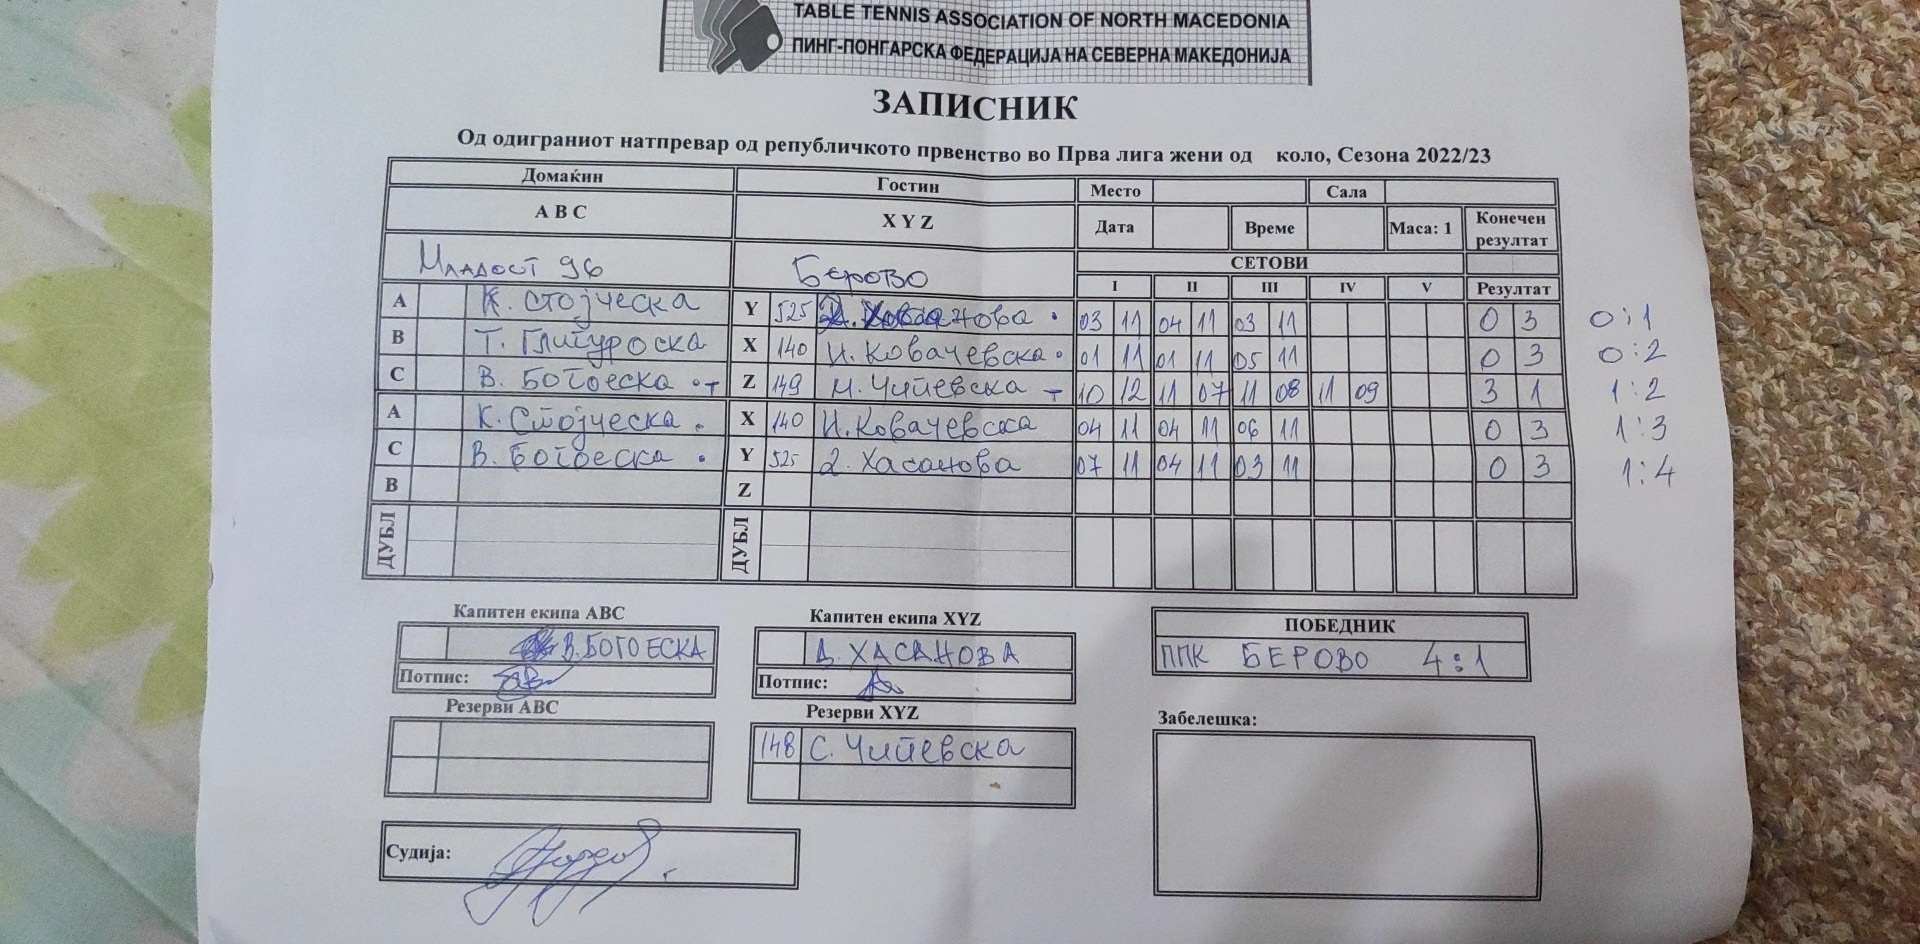 TABLE TENNIS ASSOCIATION OF NORTH MACEDONIA
ПИНГ-ПОНГАРСКА ФЕДЕРАЦИЈА НА СЕВЕРНА МАКЕДОНИЈА
ЗАПИСНИК
Од одиграниот натпревар од републичкото првенство во Прва лига жени од коло, Сезона 2022/23
Домаќин Гостин Место Сала
A B C X Y Z Дата Време Маса: 1 Конечен резултат
Младост 96 Берово СЕТОВИ
I II III IV V Резултат
A К. Стојческа Y 525 03 11 04 11 03 11 0 3 0:1
B Т. Глигуроска X 140 И. Ковачевска 01 11 01 11 05 11 0 3 0:2
C В. Богоеска Z 149 М. Чипевска 10 12 11 07 11 08 11 09 3 1 1:2
A К. Стојческа X 140 И. Ковачевска 04 11 04 11 06 11 0 3 1:3
C В. Богоеска Y 525 Д. Хасанова 07 11 04 11 03 11 0 3 1:4
B Z
ДУБЛ ДУБЛ
Капитен екипа ABC Капитен екипа XYZ ПОБЕДНИК
В. БОГОЕСКА Д. ХАСАНОВА ППК БЕРОВО 4:1
Потпис: Потпис:
Резерви ABC Резерви XYZ Забелешка:
148 С. Чипевска
Судија: